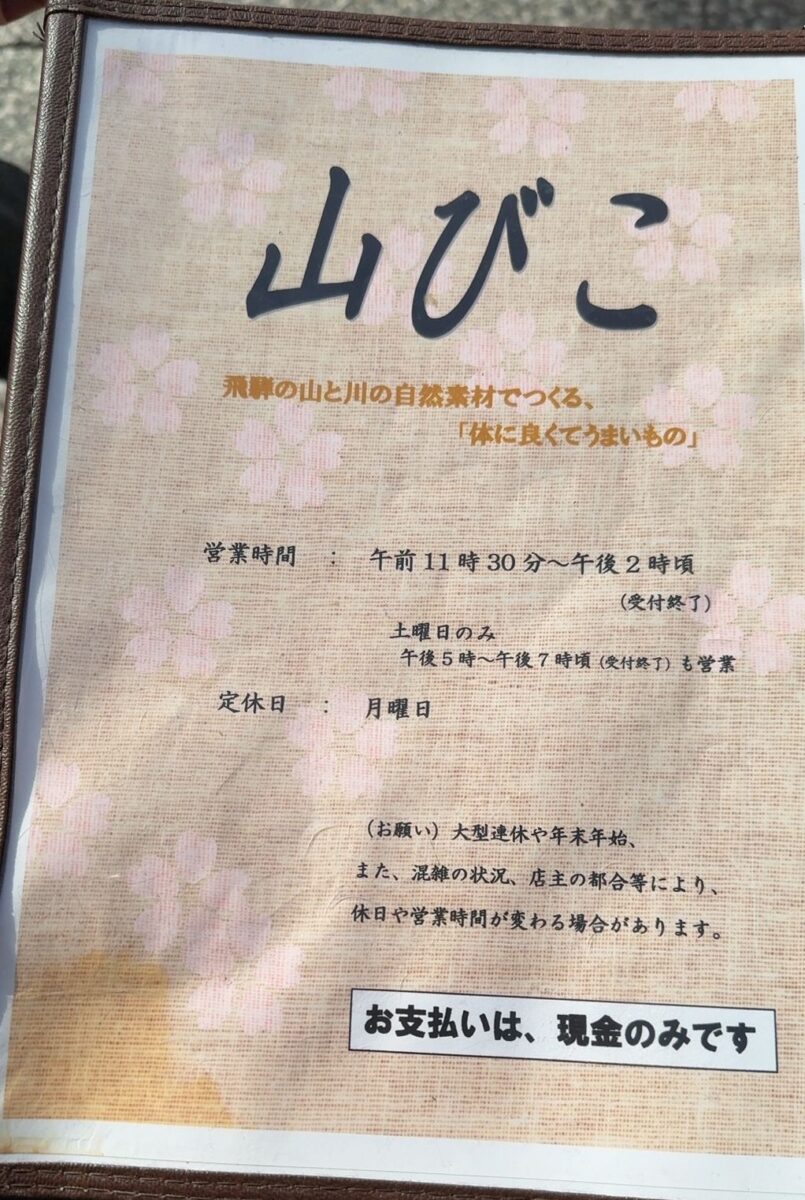 山びこ
飛騨の山と川の自然素材でつくる、
「体に良くてうまいもの」
営業時間 ： 午前11時30分～午後2時頃
（受付終了）
土曜日のみ
午後5時～午後7時頃（受付終了）も営業
定休日 ： 月曜日
（お願い）大型連休や年末年始、
また、混雑の状況、店主の都合等により、
休日や営業時間が変わる場合があります。
お支払いは、現金のみです